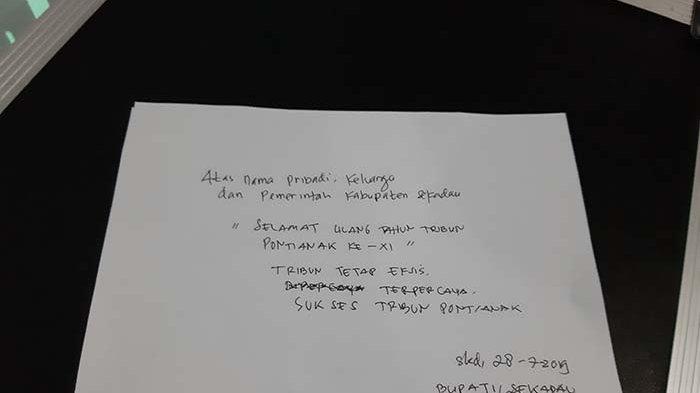 Atas nama pribadi, Keluarga
dan Pemerintah Kabupaten Sekadau
" SELAMAT ULANG TAHUN TRIBUN
PONTIANAK KE-XI "
TRIBUN TETAP EKSIS.
TERPERCAYA.
SUKSES TRIBUN PONTIANAK
skd, 28-7-2019
BUPATI SEKADAU